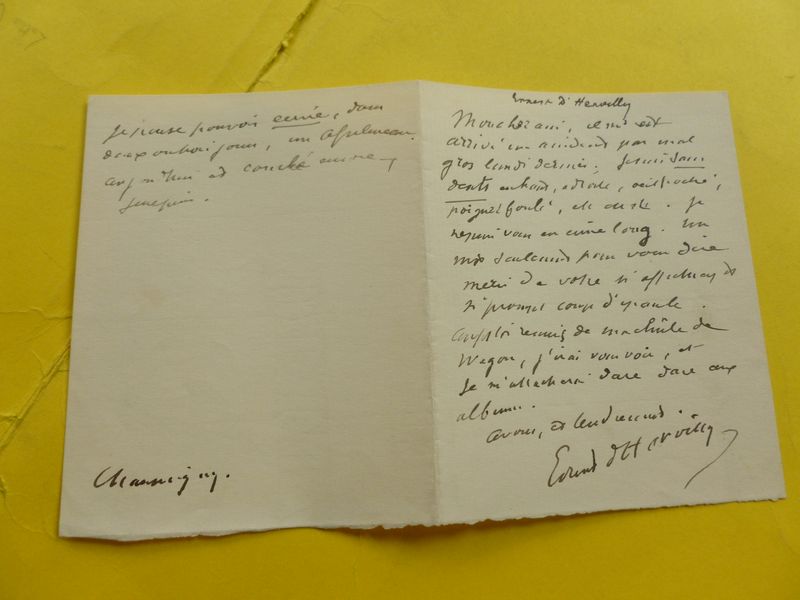 Ernest d'Hervilly
Mon cher ami, il m'est
arrivé un accident pas mal
gros lundi dernier. Je suis sans
dents en haut, à droite, oeil poché,
poignet foulé, et coetera. Je
ne puis vous en écrire long. Un
mot seulement pour vous dire
merci de votre si affectueux et
si prompt coup d'épaule.
aussitôt remis de ma chûte de
Wagon, j'irai vous voir, et
je m'attacherai dare dare aux
albums.
à vous, et tendrement.
Ernest d'Hervilly
Je pense pouvoir écrire, dans
deux ou trois jours, un
aujourd'hui est couché encore
Champigny.